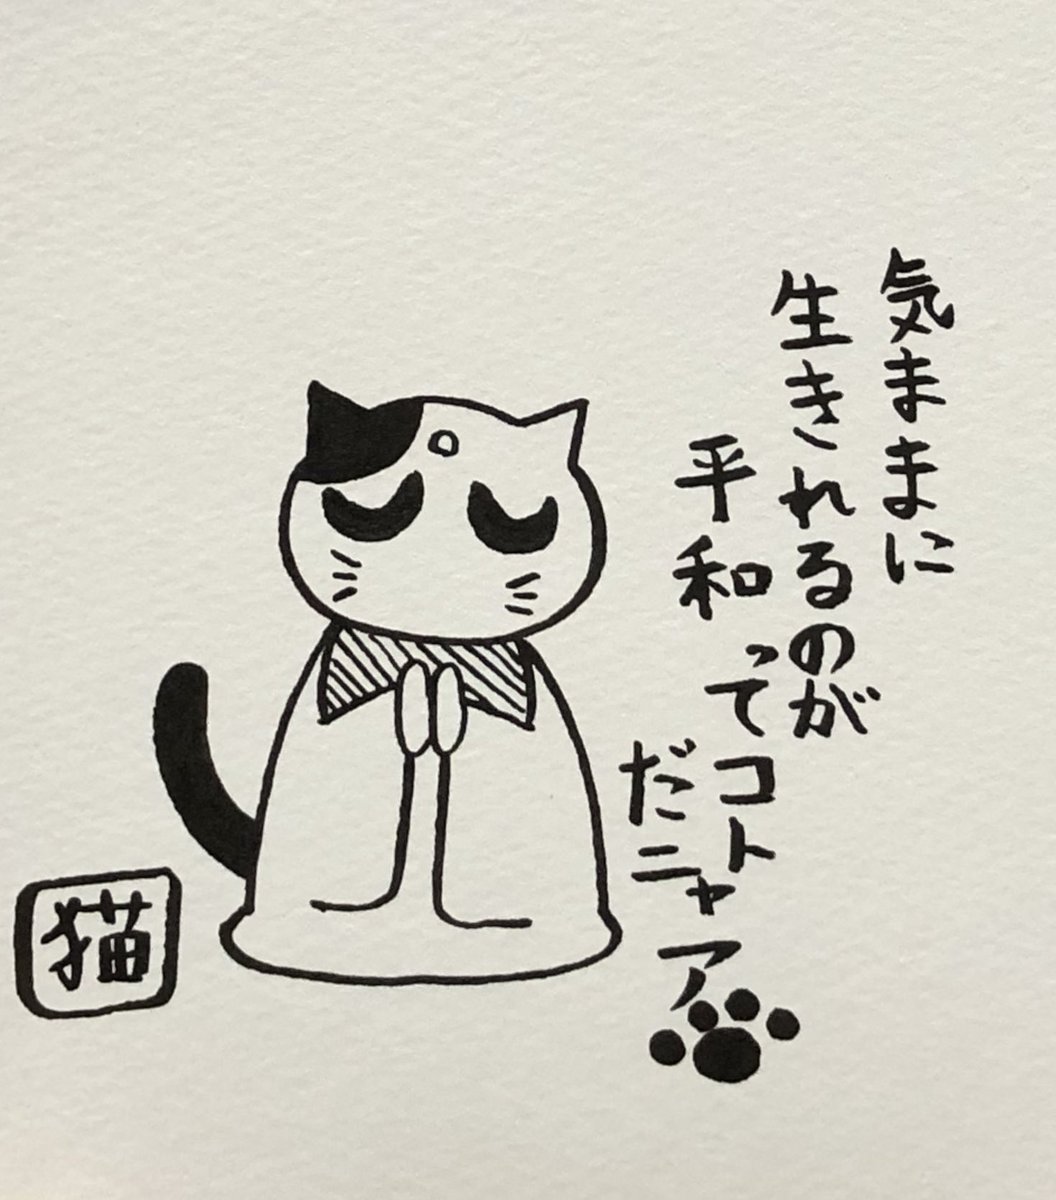 気ままに
生きれるのが
平和ってコト
だニャア
猫